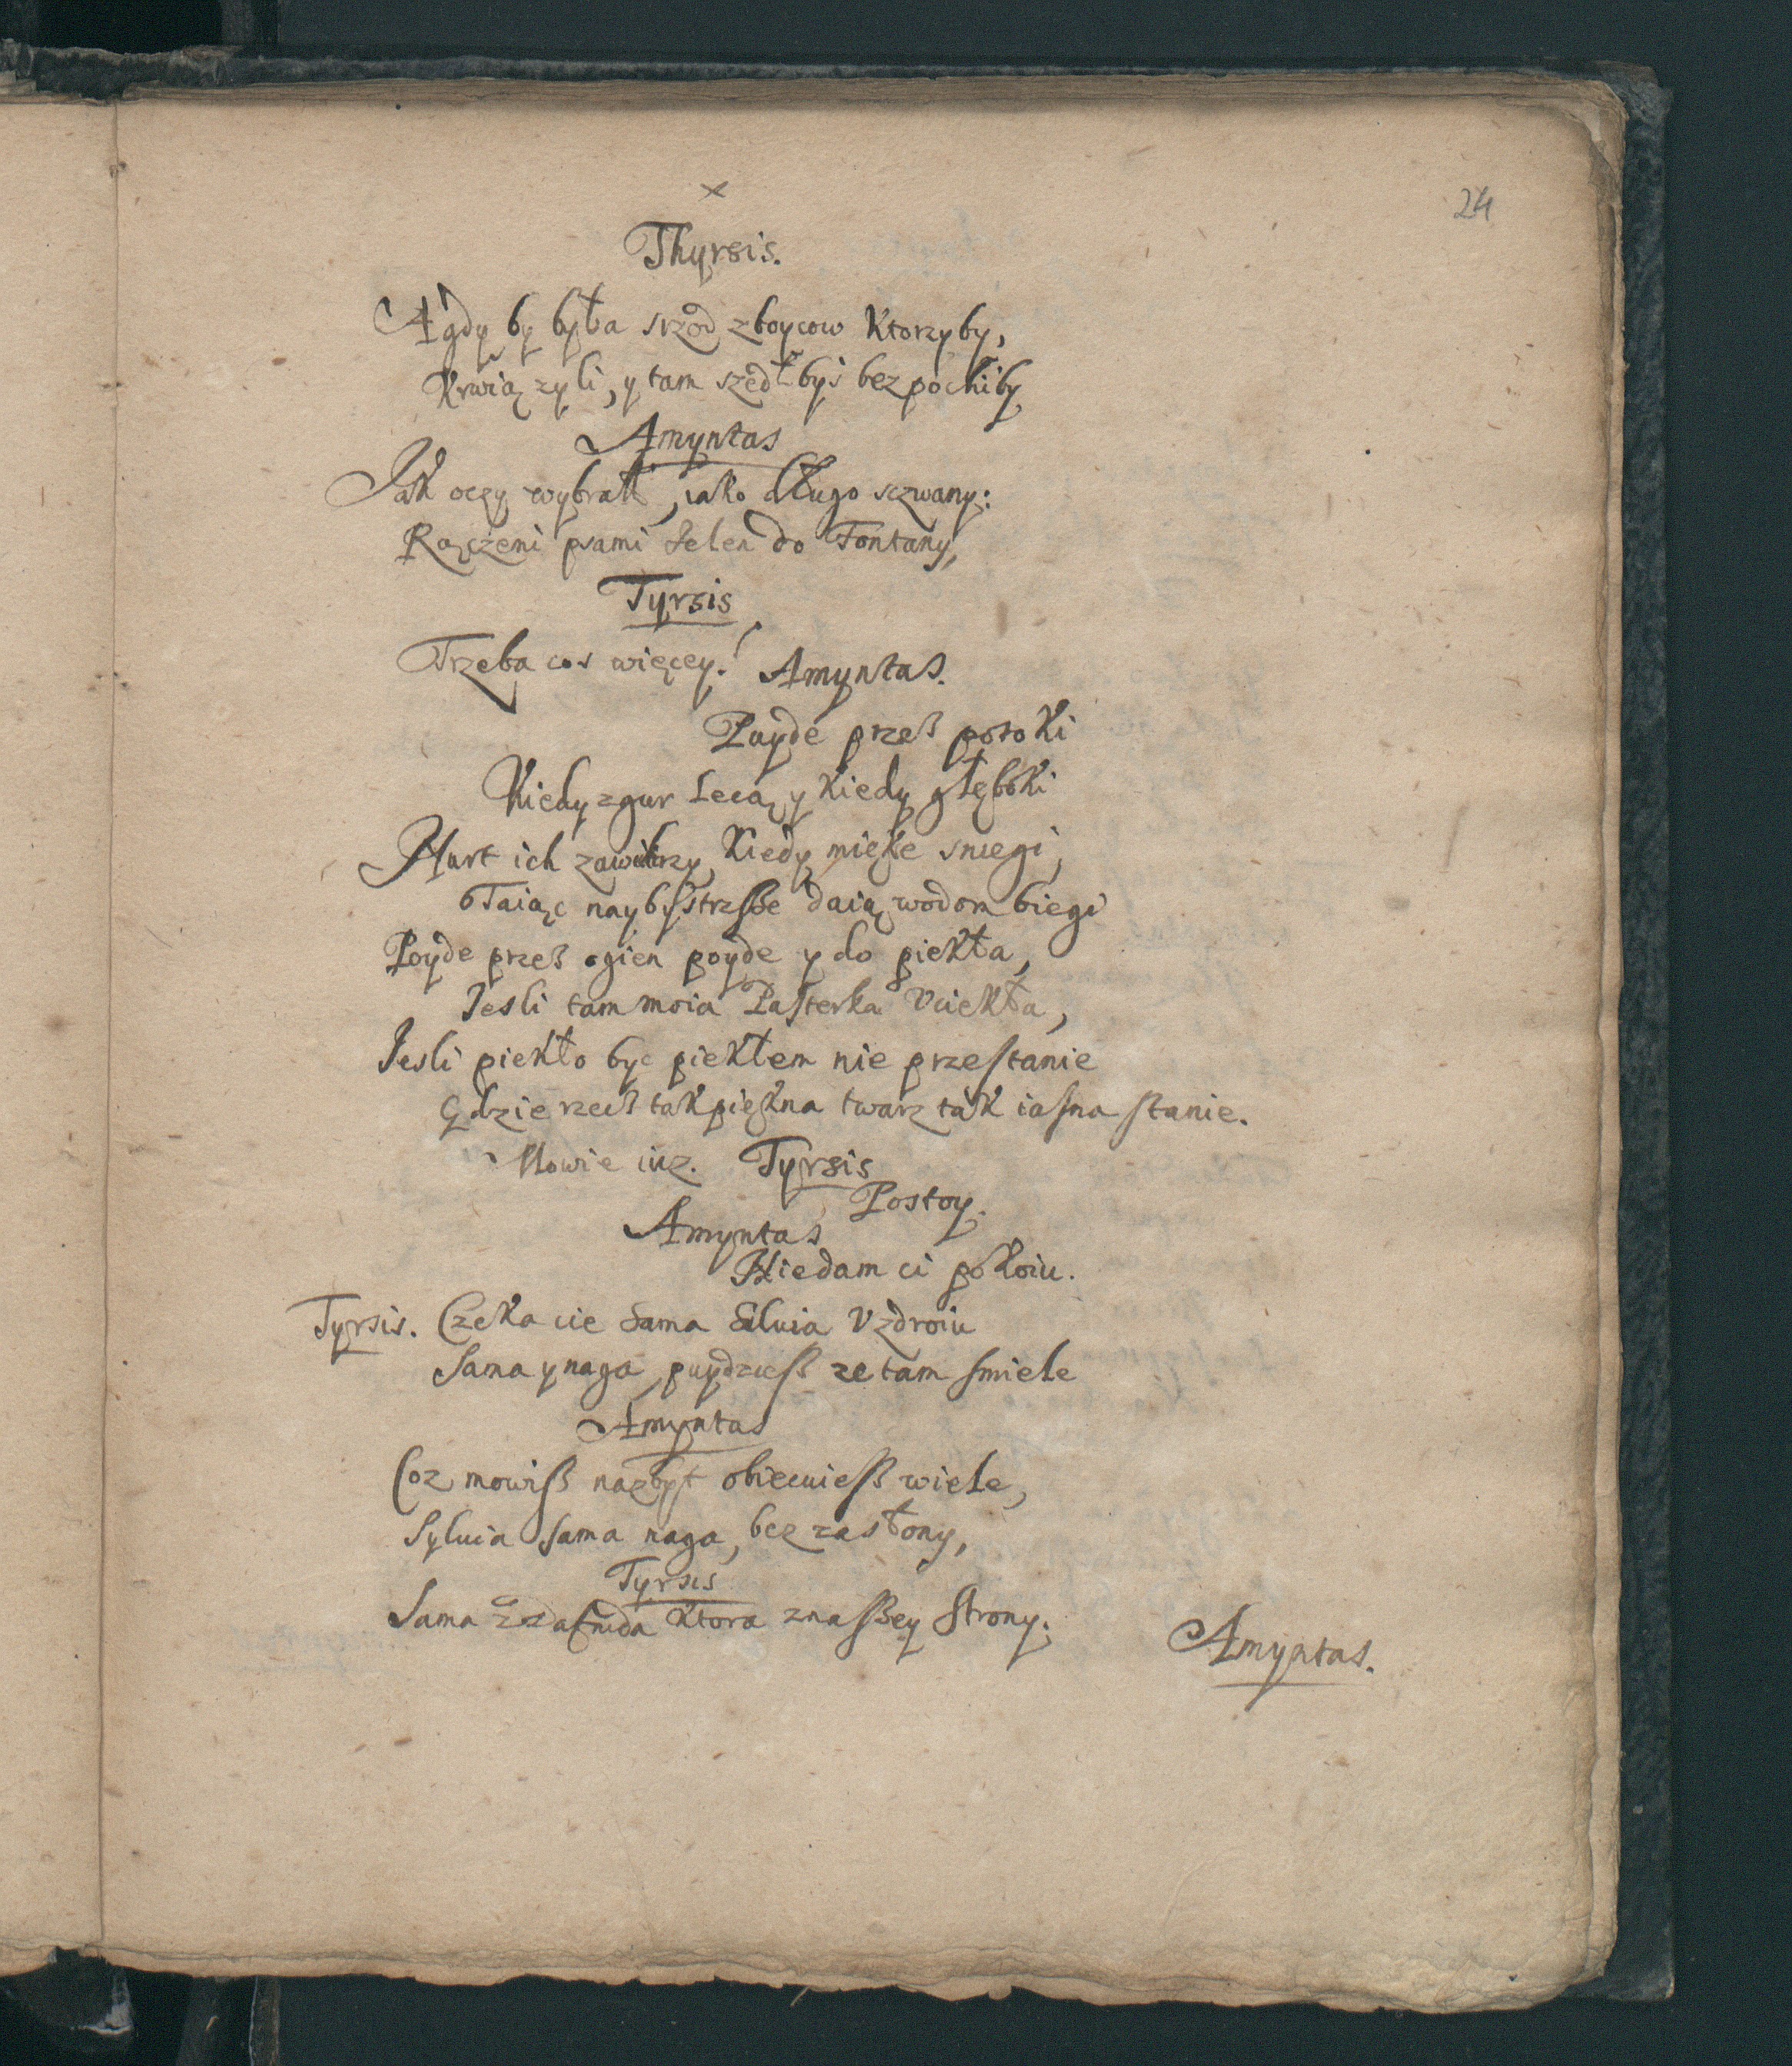 ×
24
Thyrsis.
A gdy by była srzod zboycow Ktorzyby,
Krwią zyli, y tam szedłbyś bez pochiby
Amyntas
Jak oczy wybrał, iako długo sczwany:
Rączemi psami Jelen do Fontany,
Tyrsis
Trzeba cos więcey! Amyntas.
Puyde przeß potoki
Kiedy zgur lecą y kiedy głęboki
Nurt ich zawichrzy, Kiedy mięke sniegi,
Taiąc naybystrsße daią wodom biegi
Poyde przeß ogien poyde y do piekła,
Jesli tam moia Pasterka Vciekła,
Jesli piekło byc piekłem nie przestanie
Gdzie rzecß tak piękna twarz tak iasna stanie.
Mowie iuz. Tyrsis
Postoy.
Amyntas
Niedam ci pokoiu.
Tyrsis. Czeka cie Sama Silvia Vzdroiu
Sama y naga, puydzieß ze tam smiele
Amyntas
Coz mowiß nazbyt obiecuieß wiele,
Sylvia sama naga, bez zasłony,
Tyrsis
Sama Ktora z naßey strony.
Amyntas.